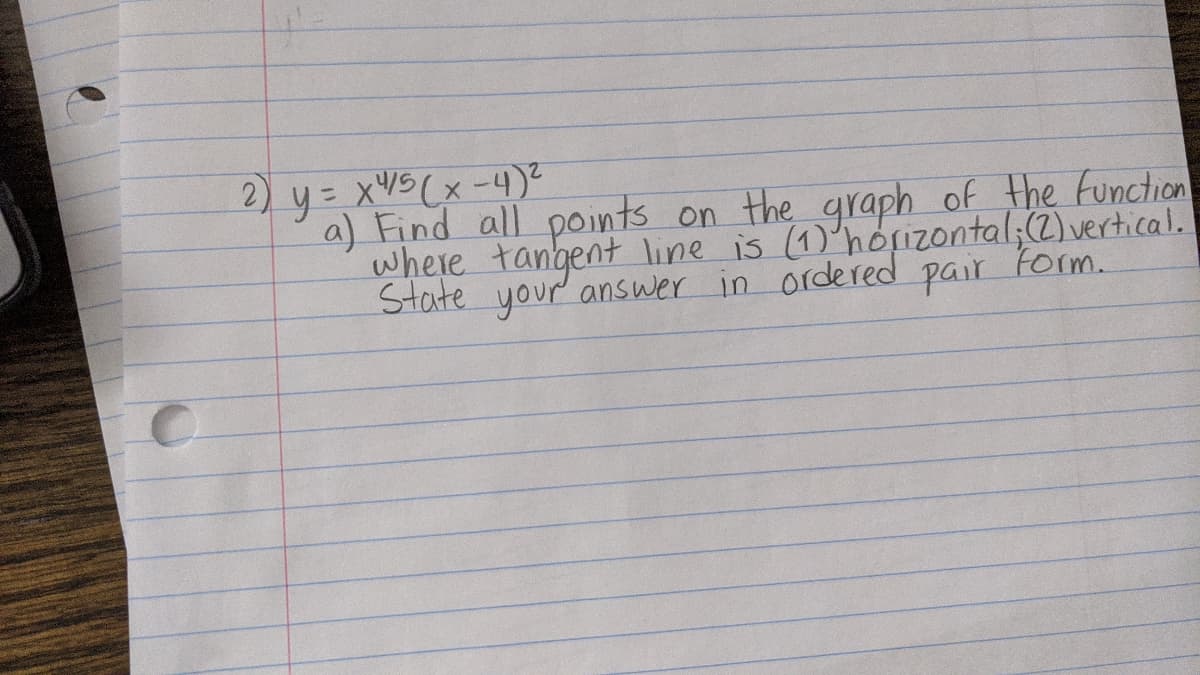 2) y = x^4/5 (x-4)^2
a) Find all points on the graph of the function
where tangent line is (1) horizontal; (2) vertical.
State your answer in ordered pair form.